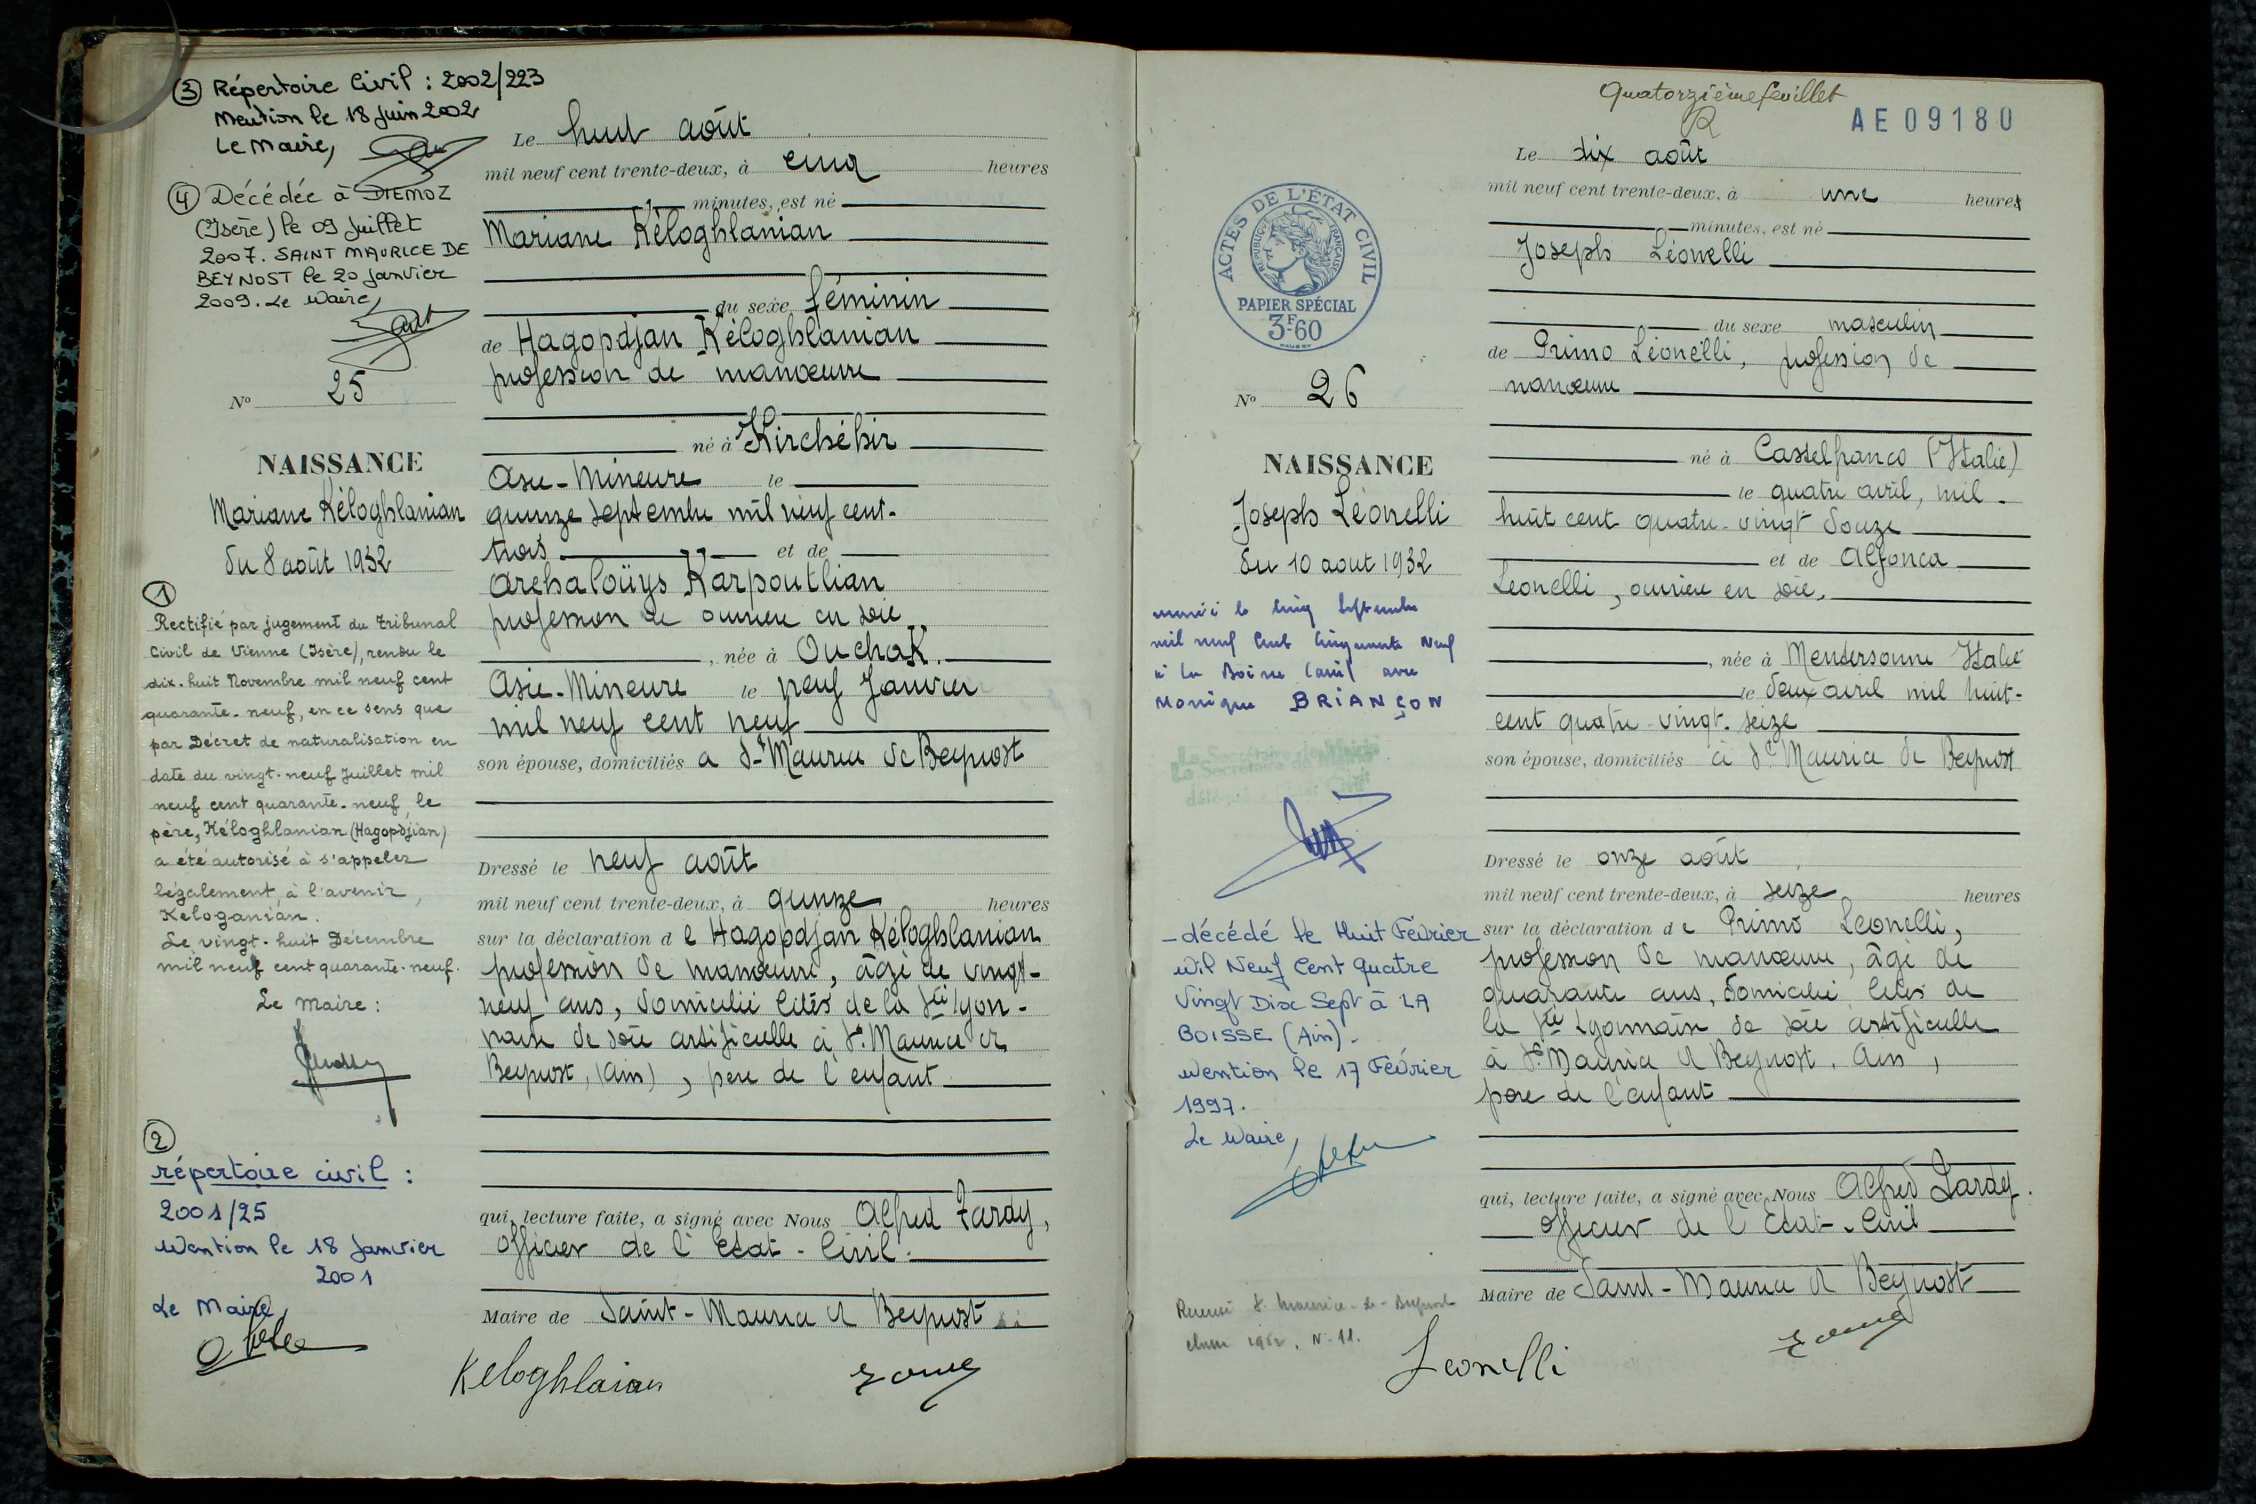 ③ Répertoire Civil : 2002/223
Mention le 18 Juin 2002
Le Maire,
④ Décédée à DIEMOZ
(Isère) le 09 Juillet
2007. SAINT MAURICE DE
BEYNOST le 20 Janvier
2009. Le Maire,
N° 25
NAISSANCE
Mariane Kéloghlanian
du 8 août 1932
①
Rectifié par jugement du tribunal
Civil de Vienne (Isère), rendu le
dix-huit Novembre mil neuf cent
quarante-neuf, en ce sens que
par Décret de naturalisation en
date du vingt-neuf Juillet mil
neuf cent quarante-neuf, le
père, Kéloghlanian (Hagopdjian)
a été autorisé à s'appeler
légalement, à l'avenir,
Keloganian.
Le vingt-huit Décembre
mil neuf cent quarante-neuf.
Le Maire :
②
répertoire civil :
2001/25
Mention le 18 Janvier
2001
Le Maire,
Le huit août
mil neuf cent trente-deux, à cinq heures
minutes, est né
Mariane Kéloghlanian
du sexe féminin
de Hagopdjan Kéloghlanian
profession de manœuvre
né à Kirchéhir
Asie-Mineure le
quinze septembre mil neuf cent-
trois et de
Archaloüys Karpoutlian
profession de ouvrière en soie
, née à Ouchak.
Asie-Mineure le neuf Janvier
mil neuf cent neuf
son épouse, domiciliés à St Maurice de Beynost
Dressé le neuf août
mil neuf cent trente-deux, à quinze heures
sur la déclaration d e Hagopdjan Kéloghlanian
profession de manœuvre, âgé de vingt-
neuf ans, domicilié cités de la Sté Lyon-
naise de soie artificielle à St Maurice de
Beynost, (Ain), père de l'enfant
qui, lecture faite, a signé avec Nous Alfred Zardy,
officier de l'Etat-Civil.
Maire de Saint-Maurice de Beynost
Keloghlaian
Quatorzième feuillet
AE 09180
ACTES DE L'ÉTAT CIVIL
RÉPUBLIQUE FRANÇAISE
PAPIER SPÉCIAL
3F60
N° 26
NAISSANCE
Joseph Léonelli
du 10 aout 1932
marié le cinq septembre
mil neuf cent cinquante neuf
à La Boisse (Ain) avec
Monique BRIANÇON
Le Secrétaire de Mairie
- décédé le Huit Février
Mil Neuf Cent Quatre
Vingt Dix Sept à LA
BOISSE (Ain).
Mention le 17 Février
1997.
Le Maire,
Recensé St Maurice-de-Beynost
classe 1952. N° 11.
Le dix août
mil neuf cent trente-deux, à une heures
minutes, est né
Joseph Léonelli
du sexe masculin
de Primo Léonelli, profession de
manœuvre
né à Castelfranco (Italie)
le quatre avril, mil-
huit cent quatre-vingt douze
et de Alfonca
Leonelli, ouvrière en soie,
, née à Mendersonne Italie
le deux avril mil huit-
cent quatre-vingt-seize
son épouse, domiciliés à St Maurice de Beynost
Dressé le onze août
mil neuf cent trente-deux, à seize heures
sur la déclaration d e Primo Leonelli,
profession de manœuvre, âgé de
quarante ans, domicilié cités de
la Sté Lyonnaise de soie artificielle
à St Maurice de Beynost. Ain,
père de l'enfant
qui, lecture faite, a signé avec Nous Alfred Zardy.
officier de l'Etat-Civil
Maire de Saint-Maurice de Beynost
Leonelli